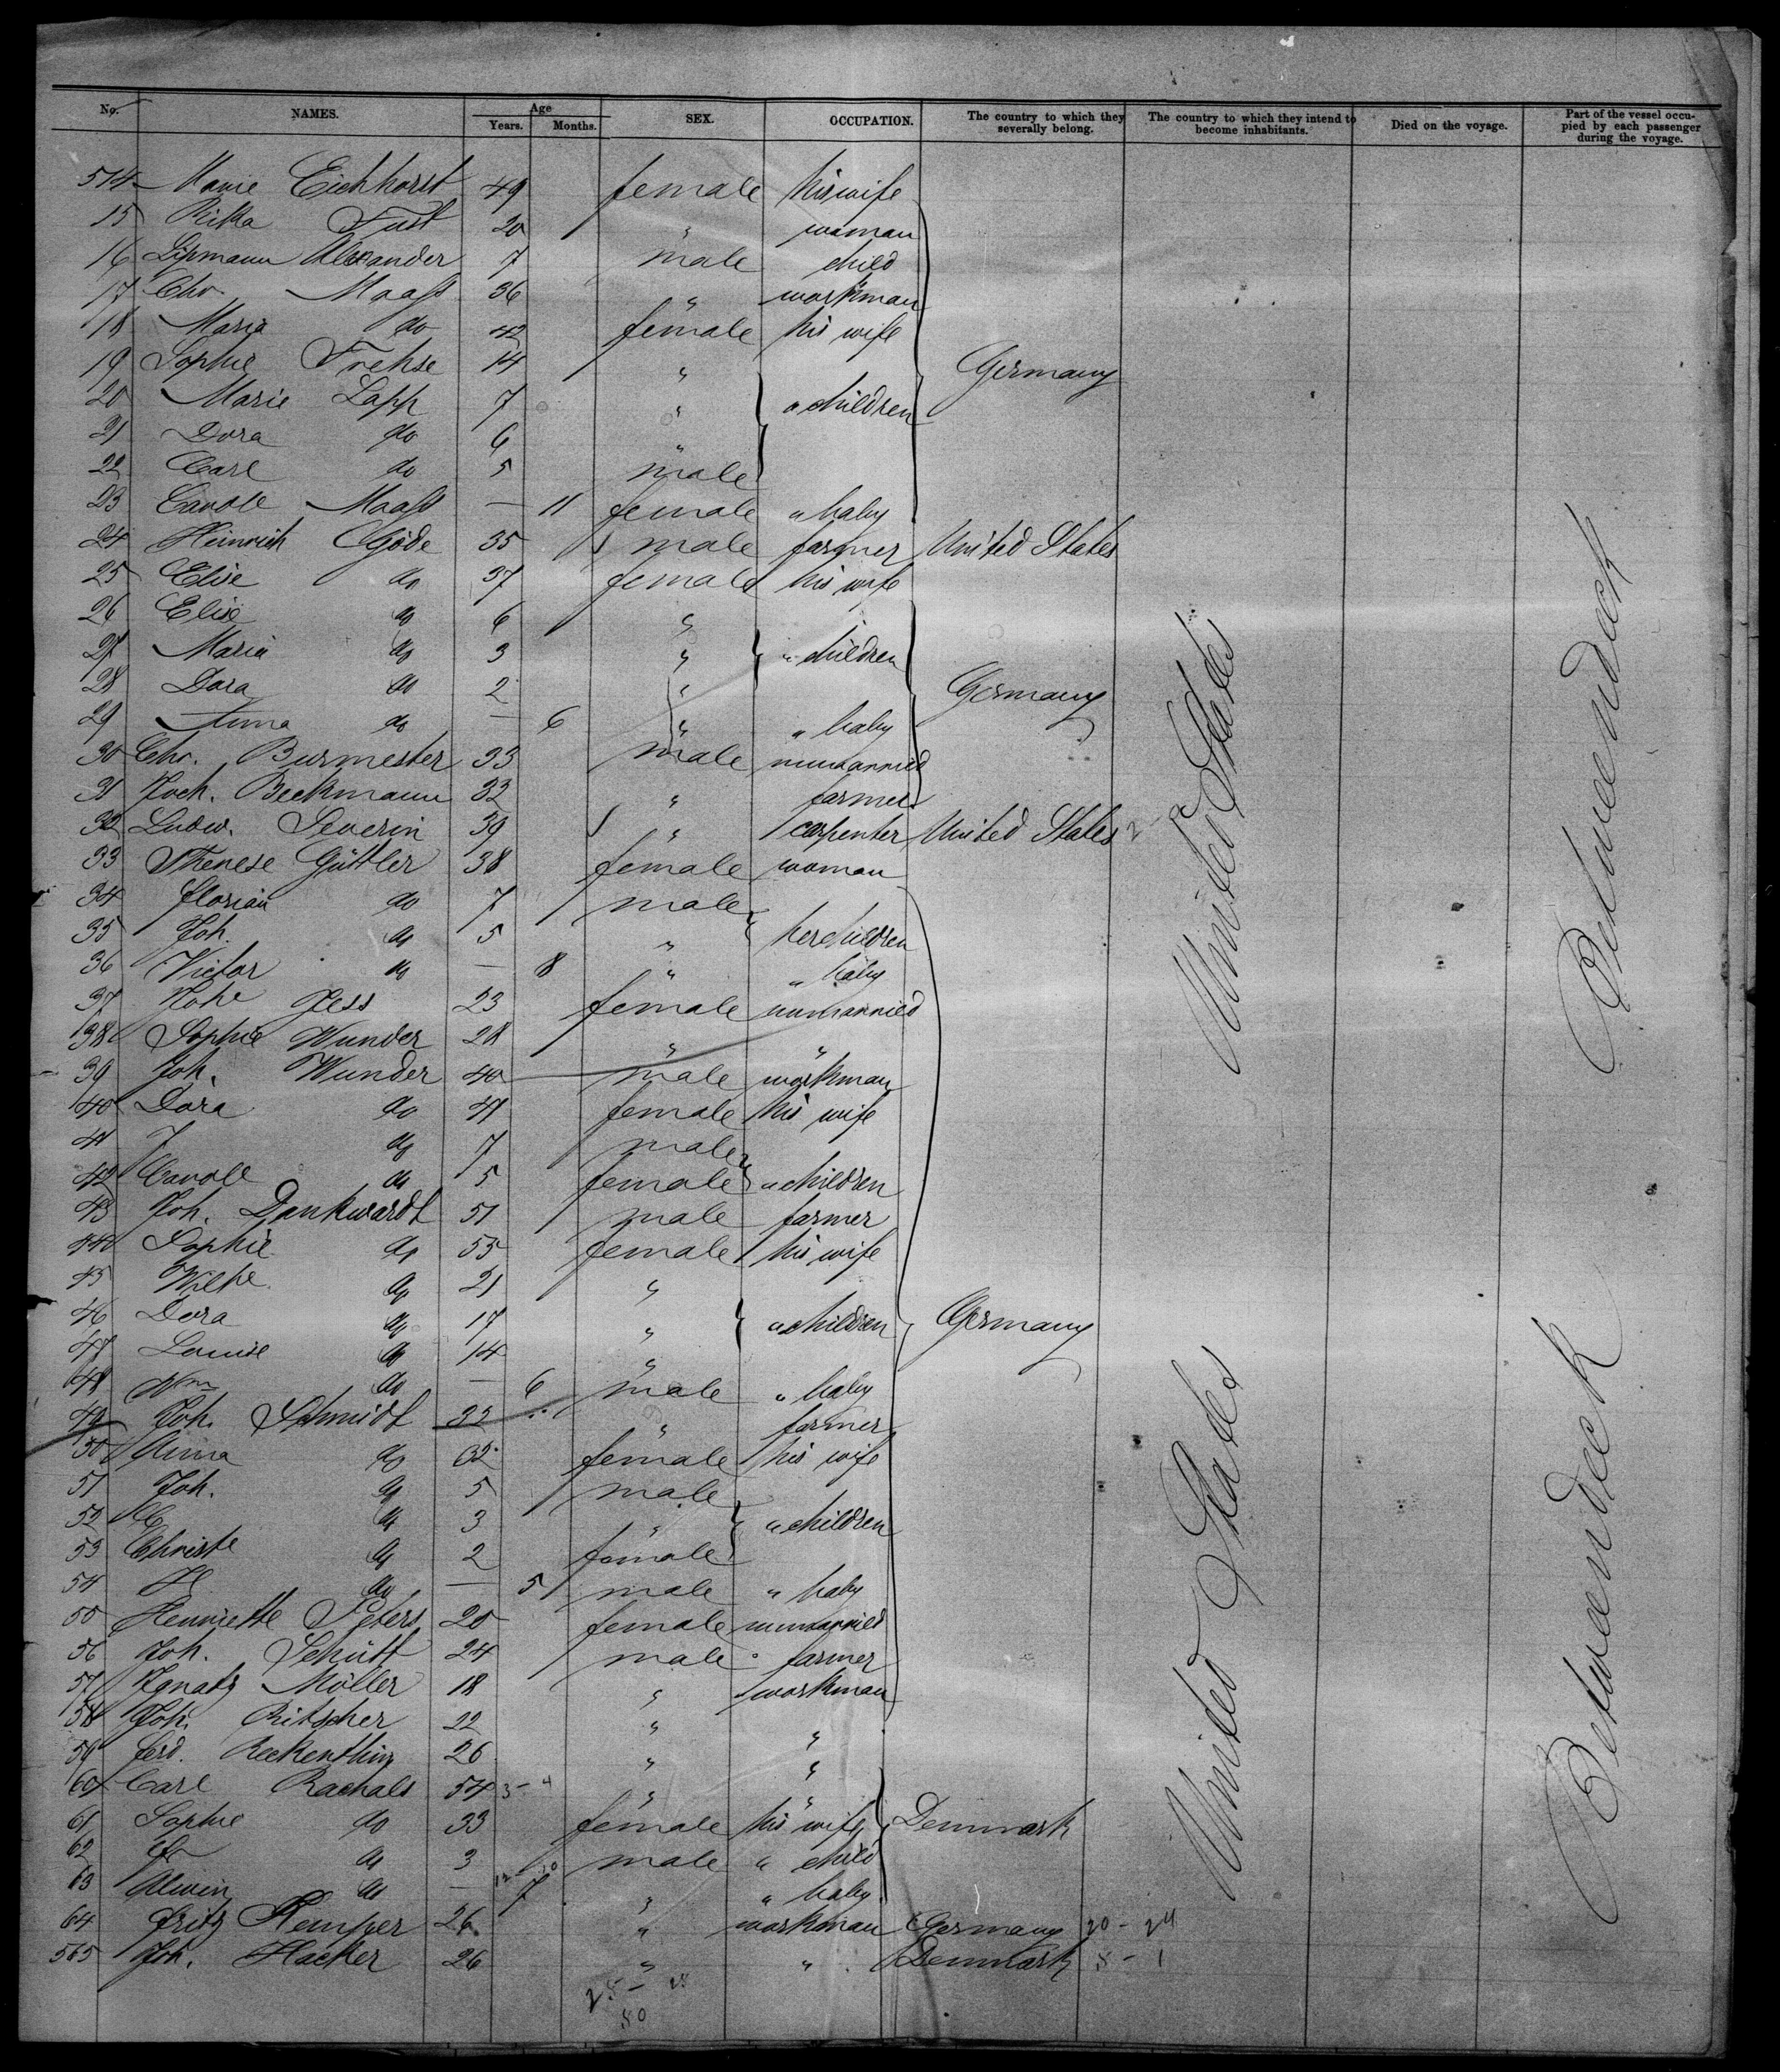 No. NAMES. Age Years. Months. SEX. OCCUPATION. The country to which they severally belong. The country to which they intend to become inhabitants. Died on the voyage. Part of the vessel occupied by each passenger during the voyage.
514 Marie Eichhorst 49 female his wife
15 Rika Fust 20 " woman
16 Lipmann Alexander 7 male child
17 Chr. Maass 36 " workman
18 Maria do 42 female his wife
19 Sophie Frehse 14 " Germany
20 Marie Lapp 7 " " children
21 Dora do 6 "
22 Carl do 5 male
23 Carole Maass — 11 female " baby
24 Heinrich Göde 35 male farmer United States
25 Elise do 37 female his wife
26 Elise do 6 "
27 Maria do 3 " " children
28 Dora do 2 " Germany
29 Anna do — 6 " " baby
30 Chr. Burmester 33 male unmarried
31 Joch. Beckmann 32 " farmer
32 Ludw. Severin 39 " carpenter United States 2 -
33 Therese Güttler 38 female woman
34 Florian do 7 male
35 Joh. do 5 " her children
36 Victor do — 8 " " baby
37 Jess 23 female unmarried
38 Sophie Wunder 28 " "
39 Joh. Wunder 40 male workman
40 Dora do 41 female his wife
41 J do 7 male
42 Carole do 5 female " children
43 Joh. Dankwardt 51 male farmer
44 Sophie do 55 female his wife
45 Wilhe do 21 "
46 Dora do 17 " " children Germany
47 Louise do 14 "
48 Wm do — 6 male " baby
49 Joh. Schmidt 32 " farmer
50 Anna do 32 female his wife
51 Joh. do 5 male
52 do 3 " " children
53 Christe do 2 female
54 do — 5 male " baby
55 Henriette Peters 20 female unmarried
56 Joh. Schütt 24 male farmer
57 Ignatz Möller 18 " workman
58 Joh. Ritscher 22 " "
59 Ferd. Reckenthin 26 " "
60 Carl Rachals 54 3 - 4 " "
61 Sophie do 33 female his wife Denmark
62 do 3 male " child
63 Alwin do — 7 " " baby
64 Fritz Kemper 26 " workman Germany 20 - 24
565 Joh. Hacker 26 " " Denmark 8 - 1
28 - 28
80
United States
United States
Betweendeck
Betweendeck